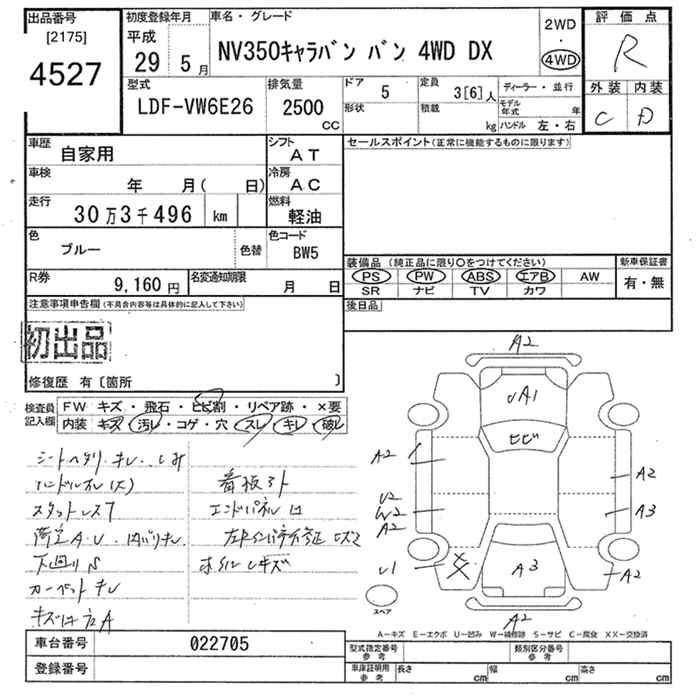 出品番号
[2175]
4527
初度登録年月
平成
29 5月
車名・グレード
NV350キャラバン バン 4WD DX
2WD
・
4WD
評価点
R
外装 内装
C D
型式
LDF-VW6E26
排気量
2500
CC
ドア
5
形状
定員
3[6]人
積載
kg
ディーラー・並行
モデル年式 年
ハンドル 左・右
車歴
自家用
シフト
AT
車検
年 月( 日)
冷房
AC
走行
30万3千496 km
燃料
軽油
色
ブルー
色替
色コード
BW5
R券
9,160円
名変通知期限
月 日
セールスポイント(正常に機能するものに限ります)
装備品(純正品に限り○をつけてください)
PS PW ABS エアB AW
SR ナビ TV カワ
新車保証書
有・無
後日品
注意事項申告欄(不具合内容等は具体的に記入して下さい)
初出品
修復歴 有〔箇所 〕
検査員
記入欄
FW キズ・飛石・ヒビ割・リペア跡・×要
内装 キズ・汚レ・コゲ・穴・スレ・キレ・破レ
シートヘタリ・キレ・シミ
ハンドルスレ(大)
スタットレス7
荷室A・U・内バリキレ
下廻りS
カーペットキレ
看板跡
エンドパネル
ホイルキズ
A2
UA1
ヒビ
A2
U2
W2
A2
A2
A3
U1
A3
A2
A2
スペア
A-キズ E-エクボ U-凹み W-補修跡 S-サビ C-腐食 XX-交換済
車台番号
022705
登録番号
型式指定番号
参考
類別区分番号
参考
車庫証明用
参考
長さ cm 幅 cm 高さ cm